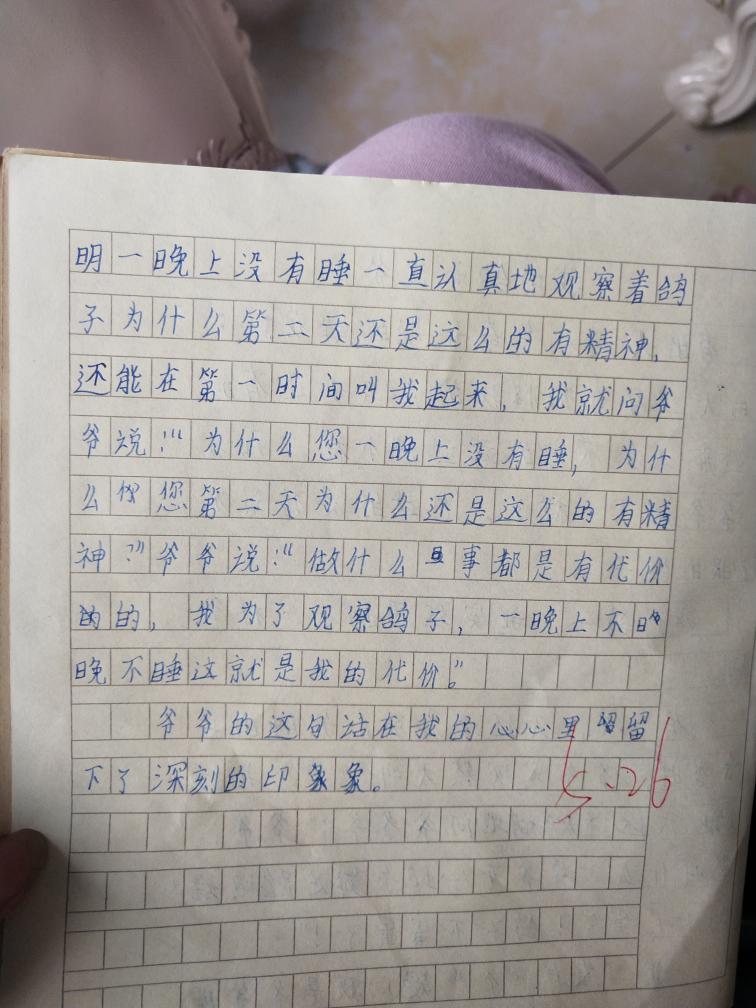 明一晚上没有睡一直认真地观察着鸽
子为什么第二天还是这么的有精神，
还能在第一时间叫我起来，我就问爷
爷说：“为什么您一晚上没有睡，为什
么您第二天为什么还是这么的有精
神？”爷爷说：“做什么事都是有代价
的，我为了观察鸽子，一晚上不
晚不睡这就是我的代价。”
爷爷的这句话在我的心心里留
下了深刻的印象。
5.26